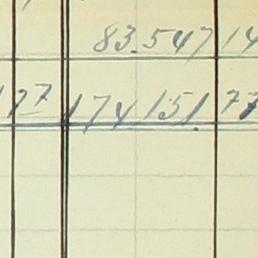 83.547 14
177 174151. 77